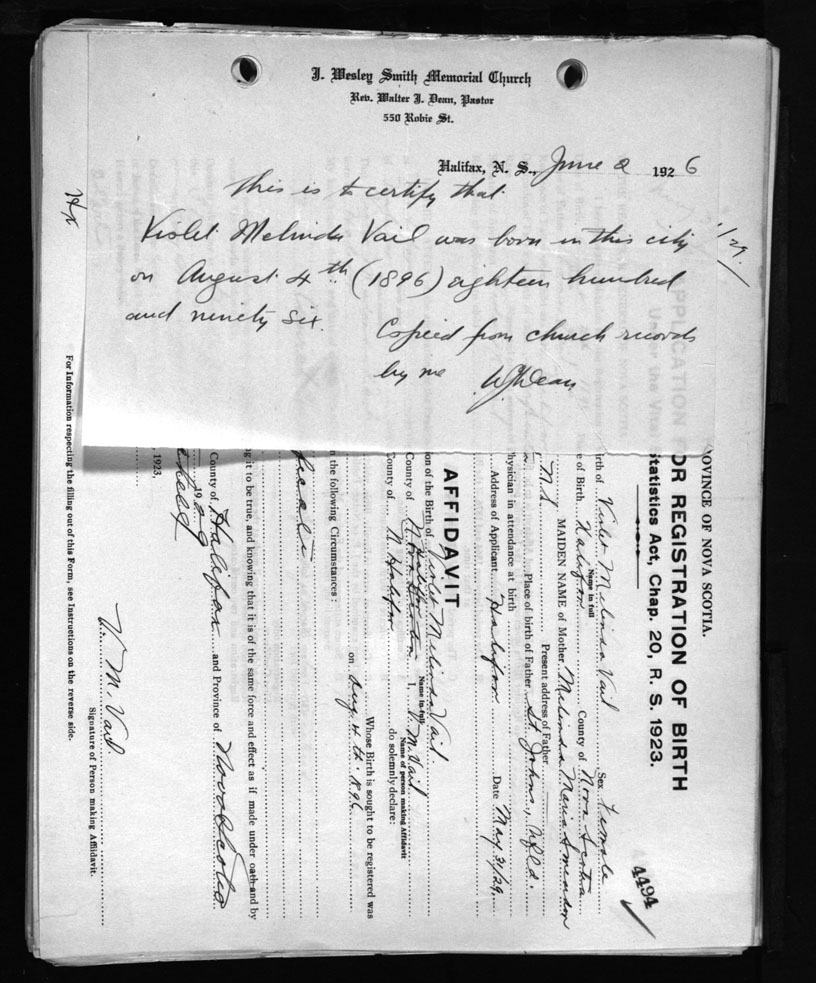 J. Wesley Smith Memorial Church
Rev. Walter J. Dean, Pastor
550 Robie St.
Halifax, N. S., June 2 1926
This is to certify that
Violet Melinda Vail was born in this city
on August 4th (1896) eighteen hundred
and ninety six.
Copied from church records
by me W J Dean
Hx
1/29/
4494
OVINCE OF NOVA SCOTIA.
OR REGISTRATION OF BIRTH
Statistics Act, Chap. 20, R. S. 1923.
irth of Violet Melinda Vail Sex Female
Name in full
ce of Birth Halifax County of Nova Scotia
MAIDEN NAME of Mother Melinda Maria
Present address of Father
N.S. Place of birth of Father St Johns, Nfld.
hysician in attendance at birth
Address of Applicant Halifax Date May 31/29
AFFIDAVIT
on of the Birth of Violet Melinda Vail
Name in full
County of I, V. M. Vail
Name of person making Affidavit
County of Halifax do solemnly declare:
Whose Birth is sought to be registered was
on Aug 4th. 1896
n the following Circumstances:
ng it to be true, and knowing that it is of the same force and effect as if made under oath and by
County of Halifax and Province of Nova Scotia
1929
, 1923.
V. M. Vail
Signature of Person making Affidavit.
For Information respecting the filling out of this Form, see Instructions on the reverse side.